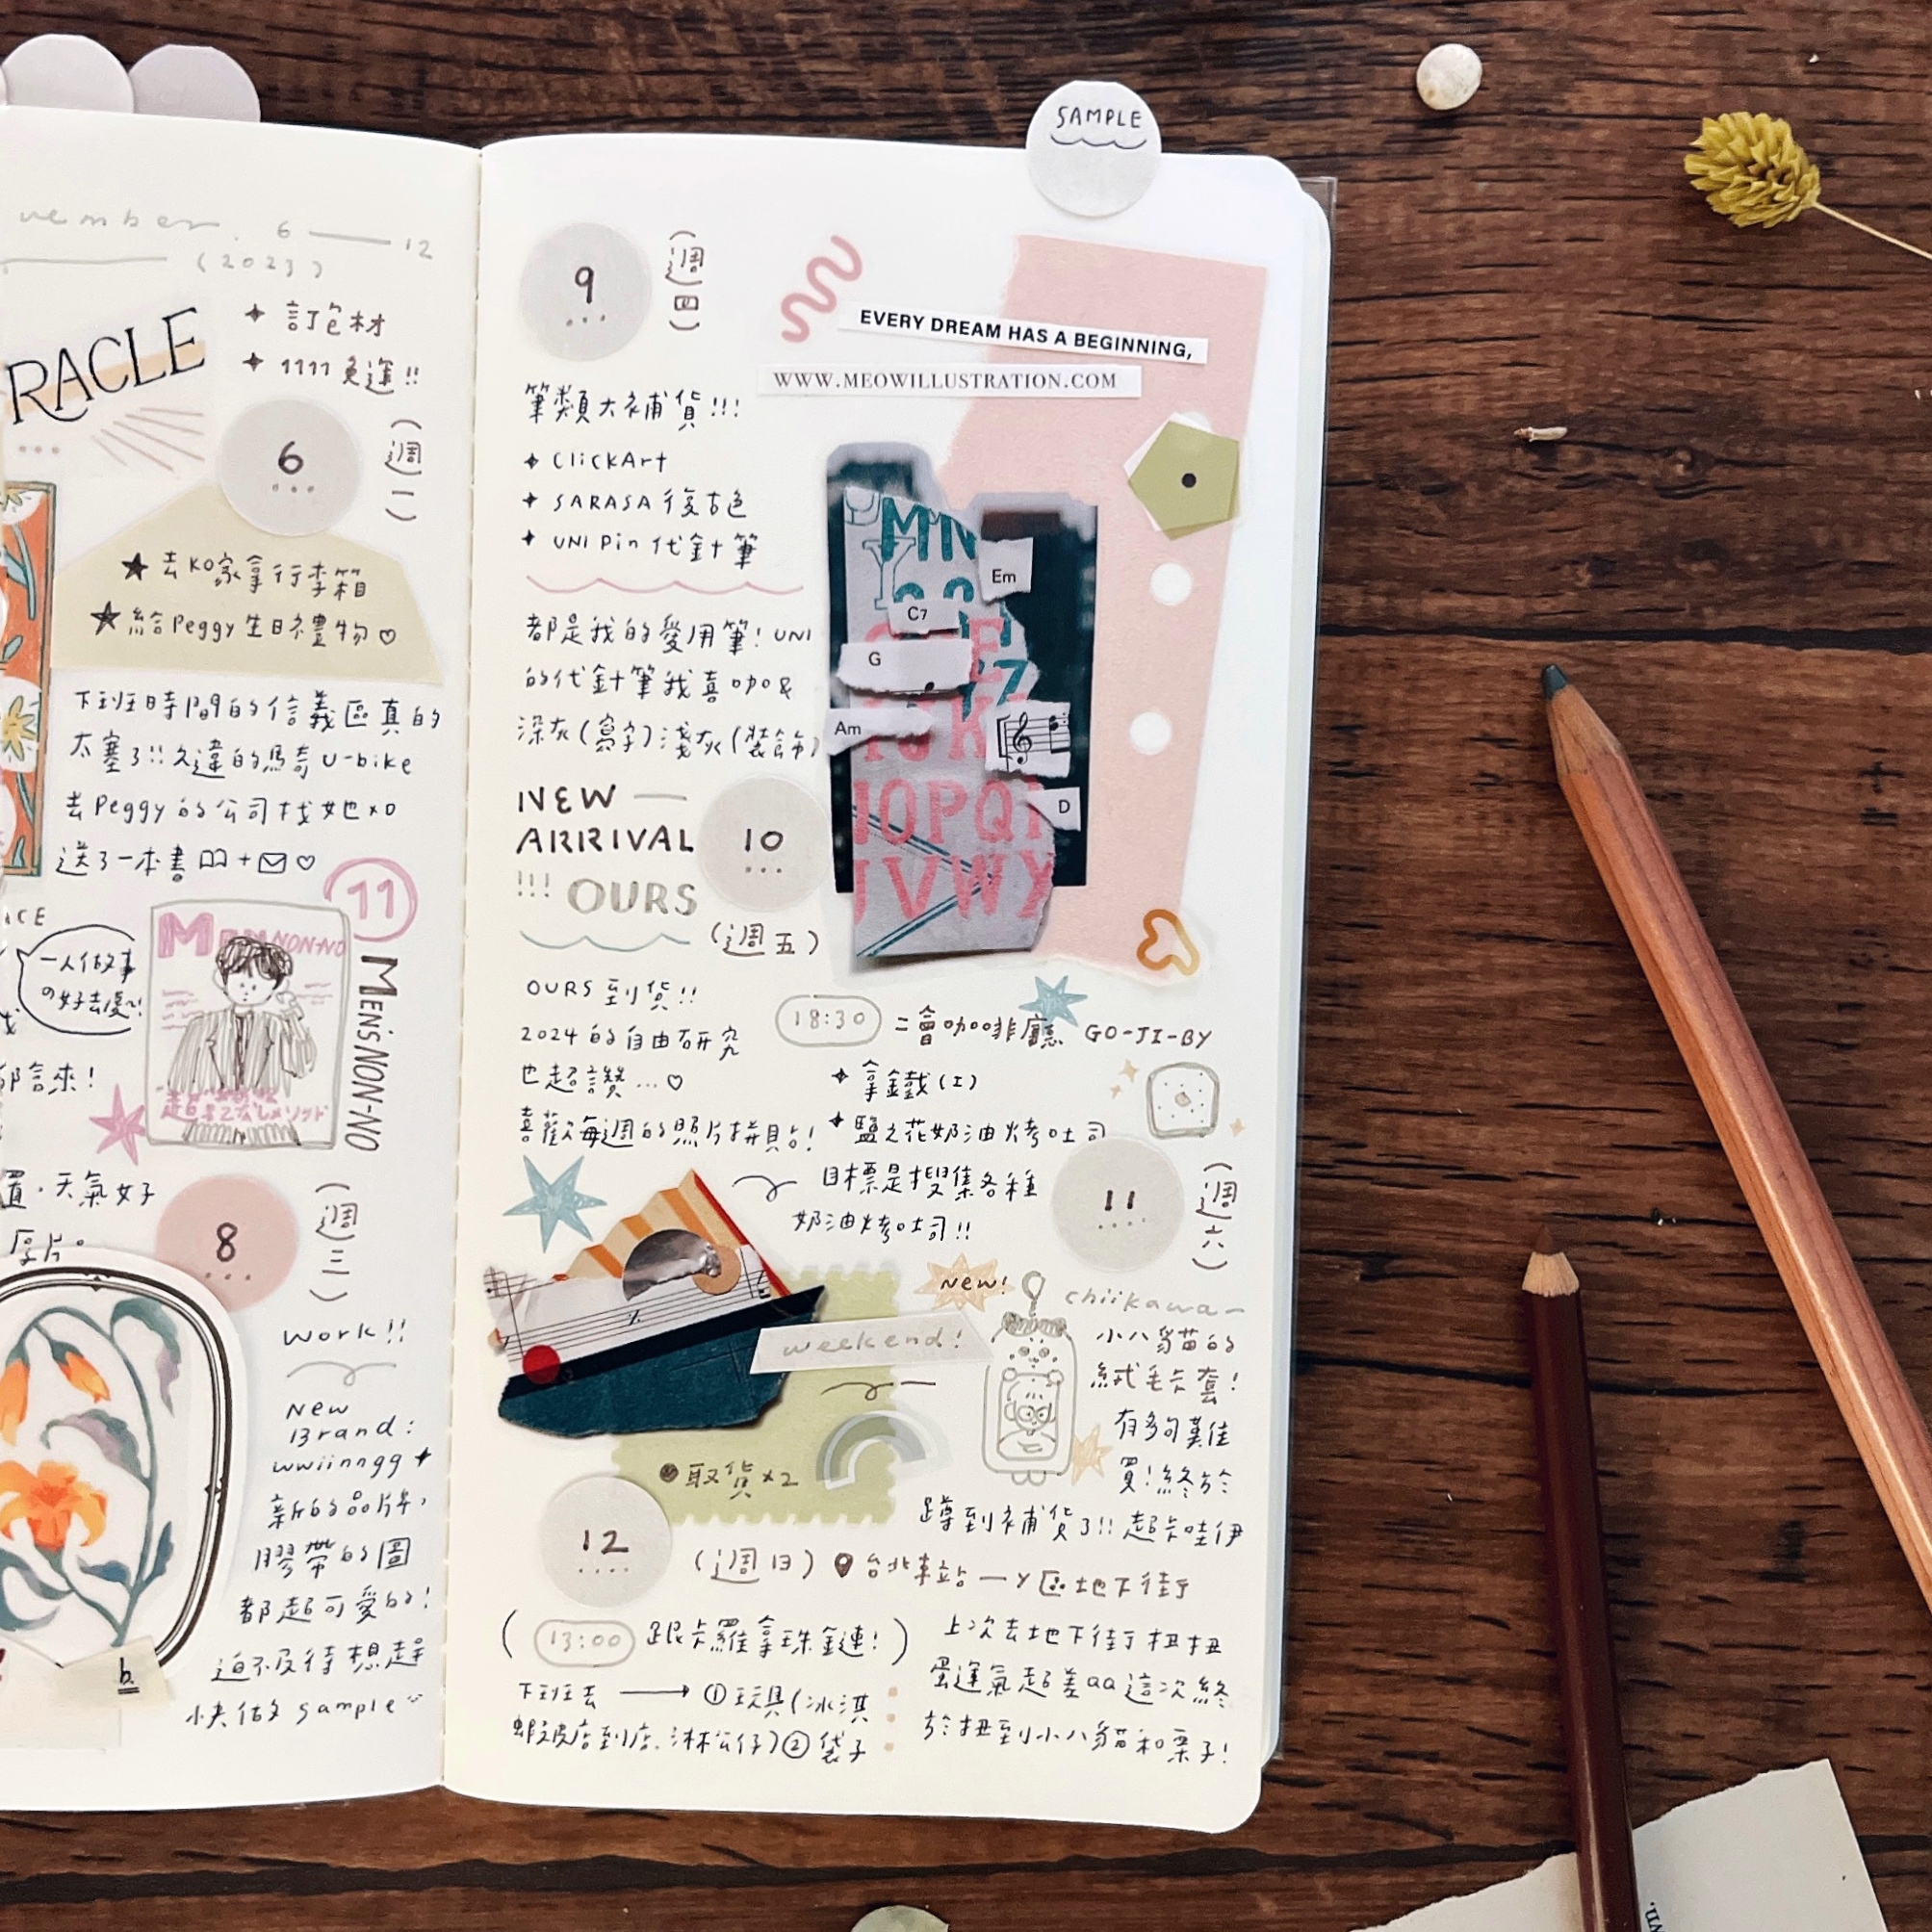 SAMPLE
vember. 6 — 12
(2023)
RACLE
✦ 訂包材
✦ 1111 免運!!
6
(週一)
★ 去KO家拿行李箱
★ 給Peggy生日禮物♡
下班時間的信義區真的
太塞了!!久違的騎 U-bike
去 Peggy 的公司找她 xo
送了一本書 + ♡
ACE
一人做事
11
MEN NON-NO
MEN'S NON-NO
置.天氣好
厚片。
8
(週三)
work!!
New
Brand:
wwiinngg ✦
新的品牌,
膠帶的圖
都超可愛的!
迫不及待想趕
快做 sample
b.
9
(週四)
EVERY DREAM HAS A BEGINNING,
WWW.MEOWILLUSTRATION.COM
筆類大補貨!!!
✦ ClickArt
✦ SARASA 復古色
✦ UNI Pin 代針筆
都是我的愛用筆! UNI
的代針筆我喜咖&
深灰(寫字)淺灰(裝飾)
MN
Em
C7
G
Am
D
IJK
IOPQ
VWY
NEW —
ARRIVAL
!!! OURS
10
(週五)
OURS 到貨!!
2024 的自由研究
也超讚...♡
喜歡每週的照片拼貼!
18:30 二會咖啡廳 GO-JI-BY
✦ 拿鐵(I)
✦ 鹽之花奶油烤吐司
目標是搜集各種
奶油烤吐司!!
11
(週六)
new!
weekend!
chiikawa —
小八貓的
絨毛卡套!
有多句難
買!終於
蹲到補貨了!! 超卡哇伊
取貨 x2
12
(週日) 台北車站 — Y區地下街
(13:00 跟卡羅拿珠鏈!)
下班去 → ①玩具(冰淇
蝦皮店到店. 淋公仔)②袋子
上次去地下街扭扭
蛋運氣超差QQ這次終
於扭到小八貓和栗子!